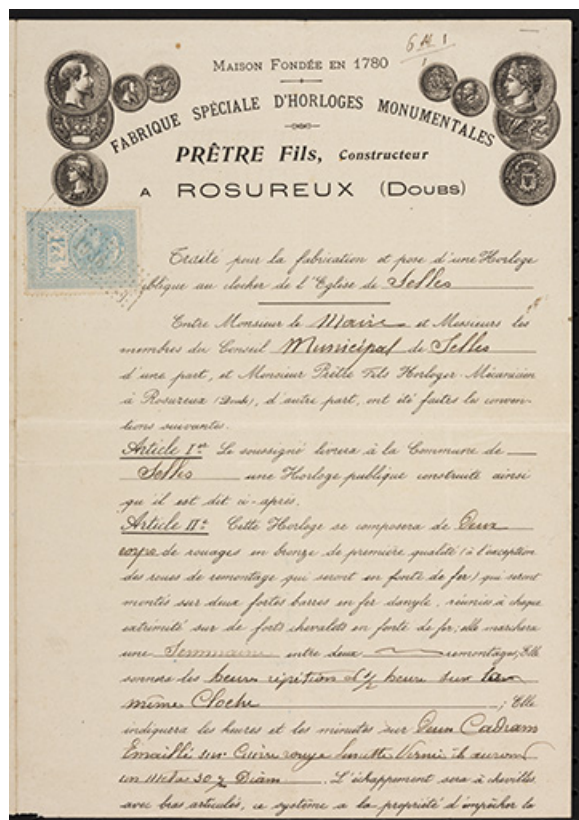 6 M 1
MAISON FONDÉE EN 1780
FABRIQUE SPÉCIALE D'HORLOGES MONUMENTALES
PRÊTRE Fils, Constructeur
A ROSUREUX (DOUBS)
Traité pour la fabrication et pose d'une Horloge
blique au clocher de l'Eglise de Selles
Entre Monsieur le Maire et Messieurs les
membres du Conseil Municipal de Selles
d'une part, et Monsieur Prêtre Fils Horloger-Mécanicien
à Rosureux (Doubs), d'autre part, ont été faites les conven-
tions suivantes.
Article Ier Le soussigné livrera à la Commune de
Selles une Horloge publique construite ainsi
qu'il est dit ci-après.
Article II: Cette Horloge se composera de Deux
corps de rouages en bronze de première qualité (à l'exception
des roues de remontage qui seront en fonte de fer) qui seront
montés sur deux fortes barres en fer d'angle, réunies à chaque
extrimité sur de forts chevalets en fonte de fer; elle marchera
une Semmaine entre deux remontages; Elle
sonnera les heures répétition et ½ heure sur la
même Cloche ; Elle
indiquera les heures et les minutes sur Deux Cadrans
Emaillé sur Cuivre rouge lunette Vernie ils auront
un mètre 30 % Diam . L'échappement sera à chevilles
avec bras articulés, ce système a la propriété d'empêcher la